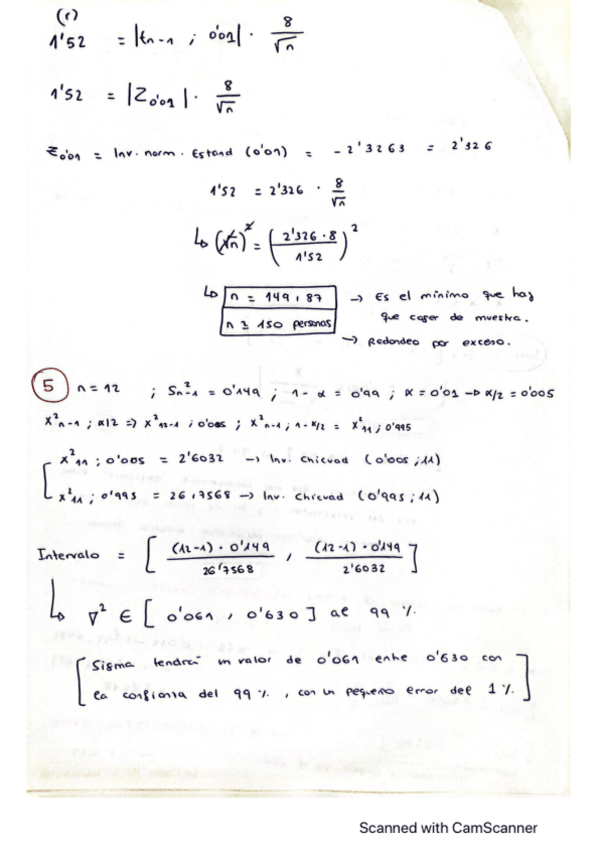 (r)
1'52 = |tn-1 ; 0'01| · 8/√n
1'52 = |Z0'01| · 8/√n
Z0'01 = Inv. norm. Estand (0'01) = -2'3263 = 2'326
1'52 = 2'326 · 8/√n
↳ (√n)² = (2'326·8/1'52)²
↳ n = 149,87 → Es el mínimo que hay
que coger de muestra.
n ≥ 150 personas → Redondeo por exceso.
5) n = 12 ; Sn-1² = 0'149 ; 1-α = 0'99 ; α = 0'01 → α/2 = 0'005
X²n-1 ; α/2 => X²12-1 ; 0'005 ; X²n-1 ; 1-α/2 = X²11 ; 0'995
X²11 ; 0'005 = 2'6032 → Inv. Chicuad (0'005 ; 11)
X²11 ; 0'995 = 26,7568 → Inv. Chicuad (0'995 ; 11)
Intervalo = [ (12-1)·0'149/26'7568 , (12-1)·0'149/2'6032 ]
↳ ∇² ∈ [ 0'061 , 0'630 ] al 99 %.
[ Sigma tendrá un valor de 0'061 entre 0'630 con
la confianza del 99 %. , con un pequeño error del 1 %. ]
Scanned with CamScanner